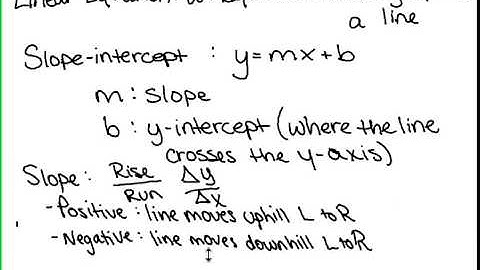 Linear Equation: an equation
a line
Slope-intercept : y=mx+b
m : slope
b : y-intercept (where the line
crosses the y-axis)
Slope: Rise/Run Δy/Δx
-Positive : line moves uphill L to R
-Negative: line moves downhill L to R